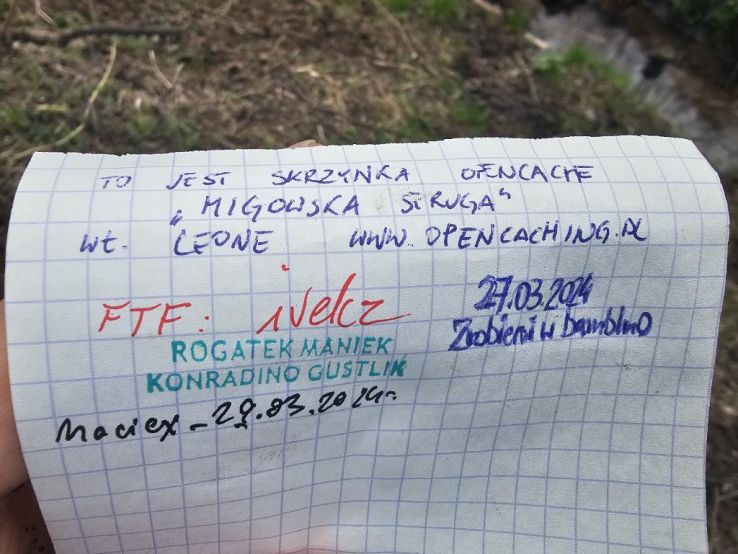 TO JEST SKRZYNKA OPENCACHE
„MIGOWSKA STRUGA"
WŁ. LEONE WWW.OPENCACHING.PL
FTF: ivekz
27.03.2024
Zrobieni w bambuko
ROGATEK MANIEK
KONRADINO GUSTLIK
Maciex - 29.03.2024r.